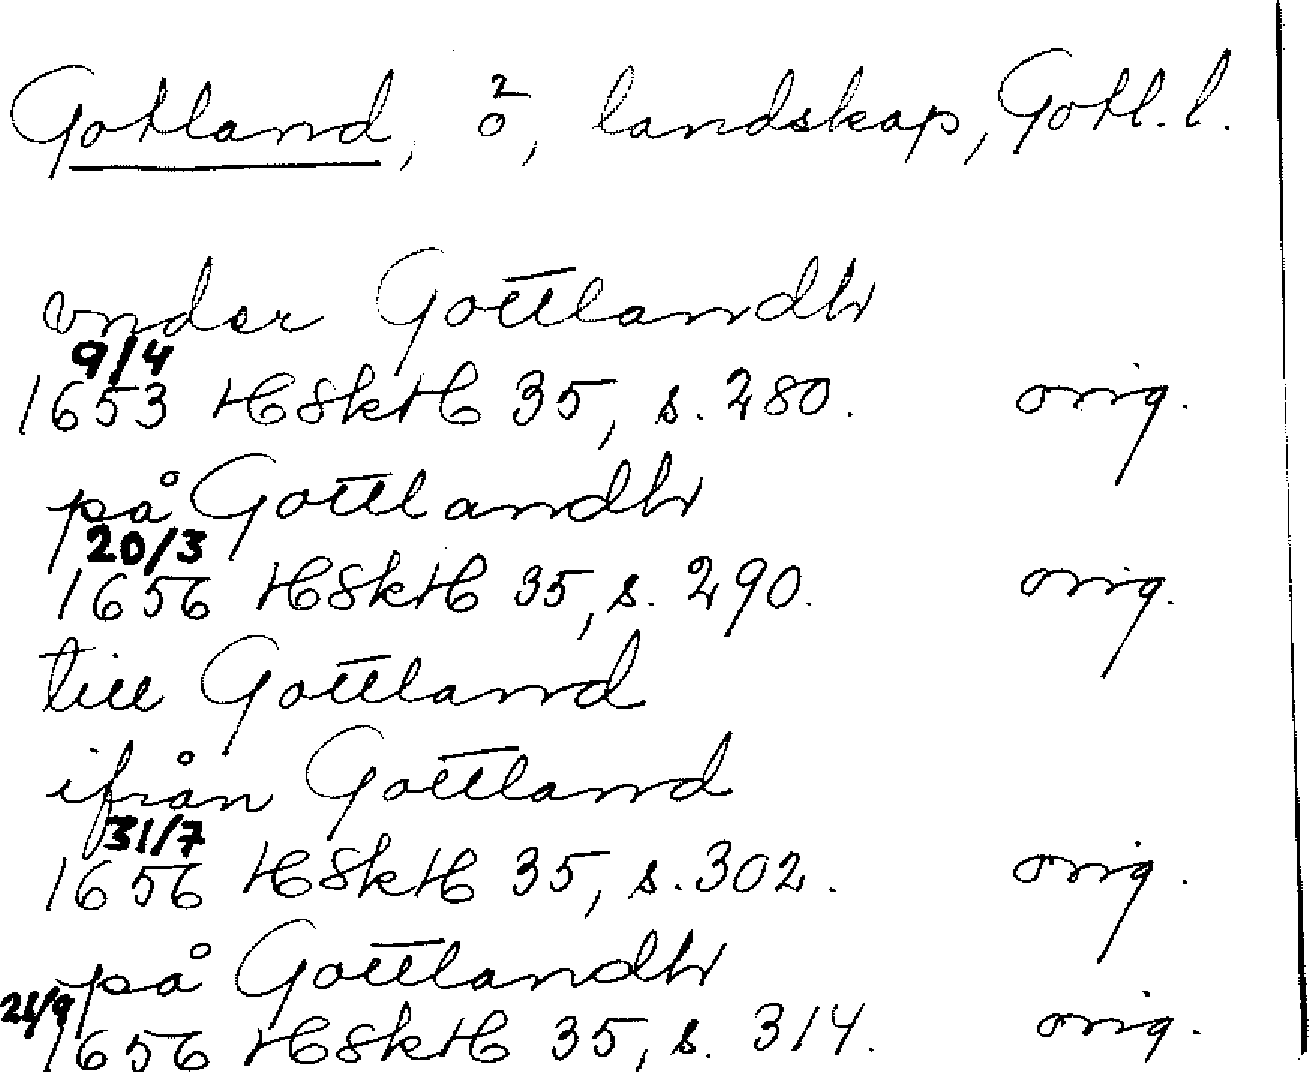 Gotland, ö, landskap, Gotl. l.
vnder Gottlandh
9/4
1653 HSkH 35, s. 280. orig.
på Gottlandh
20/3
1656 HSkH 35, s. 290. orig.
till Gottland
ifrån Gottland
31/7
1656 HSkH 35, s. 302. orig.
på Gottlandh
1656 HSkH 35, s. 314. orig.